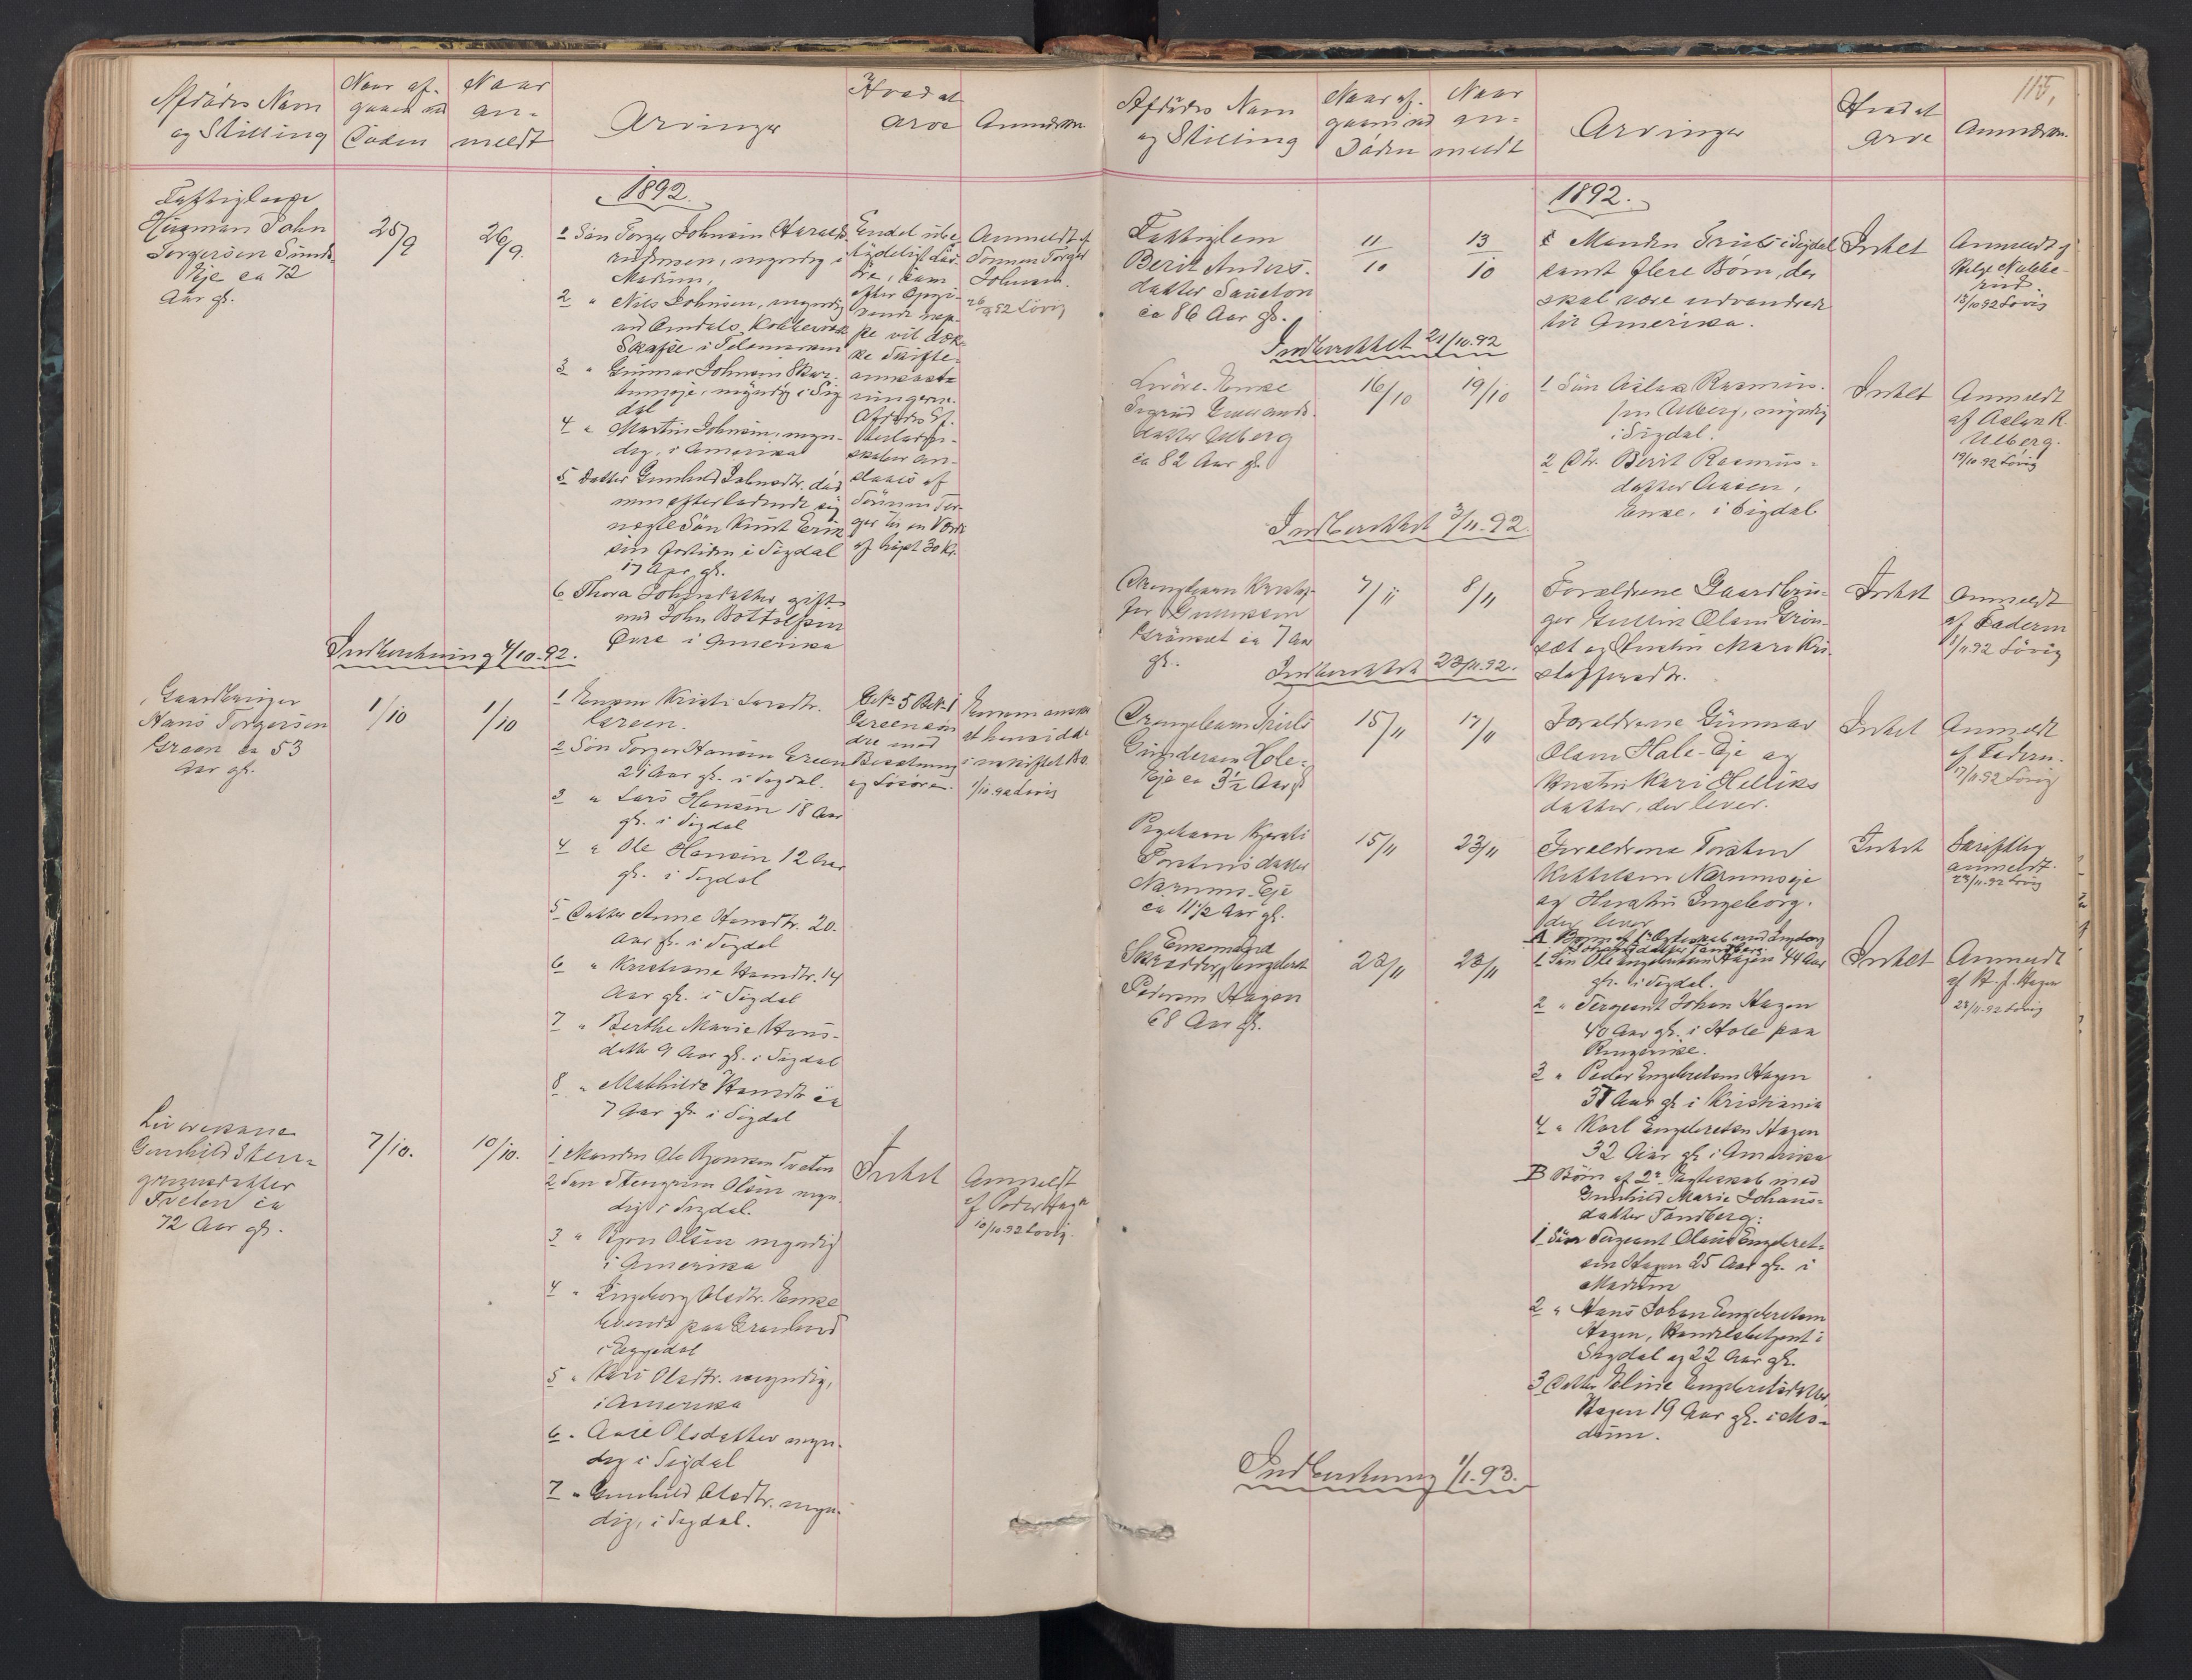 Afdødes Navn
og Stilling
Naar af-
gaaet ved
Døden
Naar
an-
meldt
Arvinger
Hvad at
arve
Anmærkn.
1892.
Fattiglem
Husmand John
Torgersen Sunds-
Eje ca 72
Aar gl.
25/9
26/9.
1 Søn Torger Johnsen
myndig i
Modum,
2 " Nils Johnsen, myndig
ved Omdals Kobberværk
Skafse i Telemarken
3 " Gunnar Johnsen
myndig i Sig
dal
4 " Martin Johnsen, myn-
dig, i Amerika
5 Datter Gunhild Johnsdtr. død
men efterladende sig
ægte Søn Knut Erik
sen fortiden i Sigdal
17 Aar gl.
6 Thora Johnsdatter gift
med John Bottolfsen
Øvre i Amerika
Endel ube-
tydeligt Løs-
øre, som
efter Opgi-
vende nep-
pe vil dæk-
ke Skifte-
omkost-
ningerne.
Afdødes Ef-
terladen-
skaber an-
slaaes af
Sønnen Tor-
ger til en Værdi
af høist 30 Kr.
Anmeldt af
Sønnen Torger
Johnsen.
26/9 92 Løvig
Indberetning 4/10.92.
Gaardbruger
Hans Torgersen
Green ca 53
Aar gl.
1/10
1/10
1 Enken Kristi Larsdtr.
Green.
2 Søn Torger Hansen Green
21 Aar gl. i Sigdal.
3 " Lars Hansen 18 Aar
gl. i Sigdal
4 " Ole Hansen 12 Aar
gl. i Sigdal
5 Datter Anne Hansdtr. 20.
Aar gl. i Sigdal
6 " Kristiane Hansdtr. 14
Aar gl. i Sigdal
7 " Berthe Marie Hans-
datter 9 Aar gl. i Sigdal
8 " Mathilde Hansdtr ca
7 Aar gl. i Sigdal
G.No 5 B.No 1
Green søn
dre med
Besætning
og Løsøre.
Enken ønsker
at hensidde
i uskiftet Bo.
1/10.92 Løvig
Gunhild Sten-
grimsdatter
Tveten ca
72 Aar gl.
7/10.
10/10.
1 Manden Ole Bjørnsen Tveten
2 Søn Stengrim Olsen myn-
dig i Sigdal.
3 " Bjørn Olsen myndig
i Amerika
4 " Ingeborg Olsdtr. Enke
boende paa
i Eggedal
5 " Kari Olsdtr. myndig,
i Amerika
6 " Aase Olsdatter myn-
dig i Sigdal
7 " Gunhild Olsdtr. myn-
dig, i Sigdal.
Intet
Anmeldt
af Peder Hagen
10/10.92 Løvig.
115,
Afdødes Navn
og Stilling
Naar af-
gaaet ved
Døden
Naar
an-
meldt
Arvinger
Hvad at
arve
Anmærkn.
1892.
Fattiglem
Berit Anders-
datter
ca 86 Aar gl.
11/10
13/10
Manden i Sigdal
samt flere Børn, der
skal være udvandret
til Amerika.
Intet
Anmeldt af
Helge
13/10 92 Løvig
Indberettet 21/10.92
Enke
Sigrid
datter Ulberg
ca 82 Aar gl.
16/10
19/10
1 Søn Aslak Rasmus-
sen Ulberg, myndig
i Sigdal.
2 Dtr. Berit Rasmus-
datter Aasen,
Enke, i Sigdal
Intet
Anmeldt
af Aslak R.
Ulberg.
19/10 92 Løvig
Indberettet 3/11.92.
Drengebarn Kristof-
fer Gulliksen
Grønset ca 7 Aar
gl.
7/11
8/11
Forældrene Gaardbru-
ger Gullik Olsen Grøn-
set og Hustru Mari Kri-
stoffersdtr.
Intet
Anmeldt
af Faderen
8/11.92 Løvig
Indberettet 23/11.92.
Drengebarn
Gundersen Hole-
Eje ca 3½ Aar gl
15/11
17/11
Forældrene Gunnar
Olsen Hole-Eje og
Hustru Kari Helliks
datter, der lever.
Intet
Anmeldt
af Faderen.
17/11.92 Løvig
Pigebarn Kjersti
Torstensdatter
Narums-Eje
ca 11½ Aar gl.
15/11
23/11
Forældrene Torsten
Kittelsen Narumseje
og Hustru Ingeborg.
der lever
Intet
Skriftlig
anmeldt.
23/11.92 Løvig
Enkemand
Skrædder Engebret
Pedersen Hagen
68 Aar gl.
23/11
28/11
A Børn af 1ste Ægteskab med Ingeborg
1 Søn Ole Engebretsen Hagen 44 Aar
gl. i Sigdal.
2 " Sergeant Johan Hagen
40 Aar gl. i Hole paa
Ringerike.
3 " Peder Engebretsen Hagen
37 Aar gl i Kristiania
4 " Karl Engebretsen Hagen
32 Aar gl i Amerika
B Børn af 2det Ægteskab med
Gunhild Marie Johans-
datter Tandberg:
1 Søn Sergeant Olaus Engebret-
sen Hagen 25 Aar gl. i
Modum
2 " Hans Johan Engebretsen
Hagen, Handelsbetjent i
Sigdal og 22 Aar gl.
3 Datter Eline Engebretsdatter
Hagen 19 Aar gl. i Mo-
dum.
Intet
Anmeldt
af H. J. Hagen
28/11.92 Løvig
Indberetning 1/1.93.